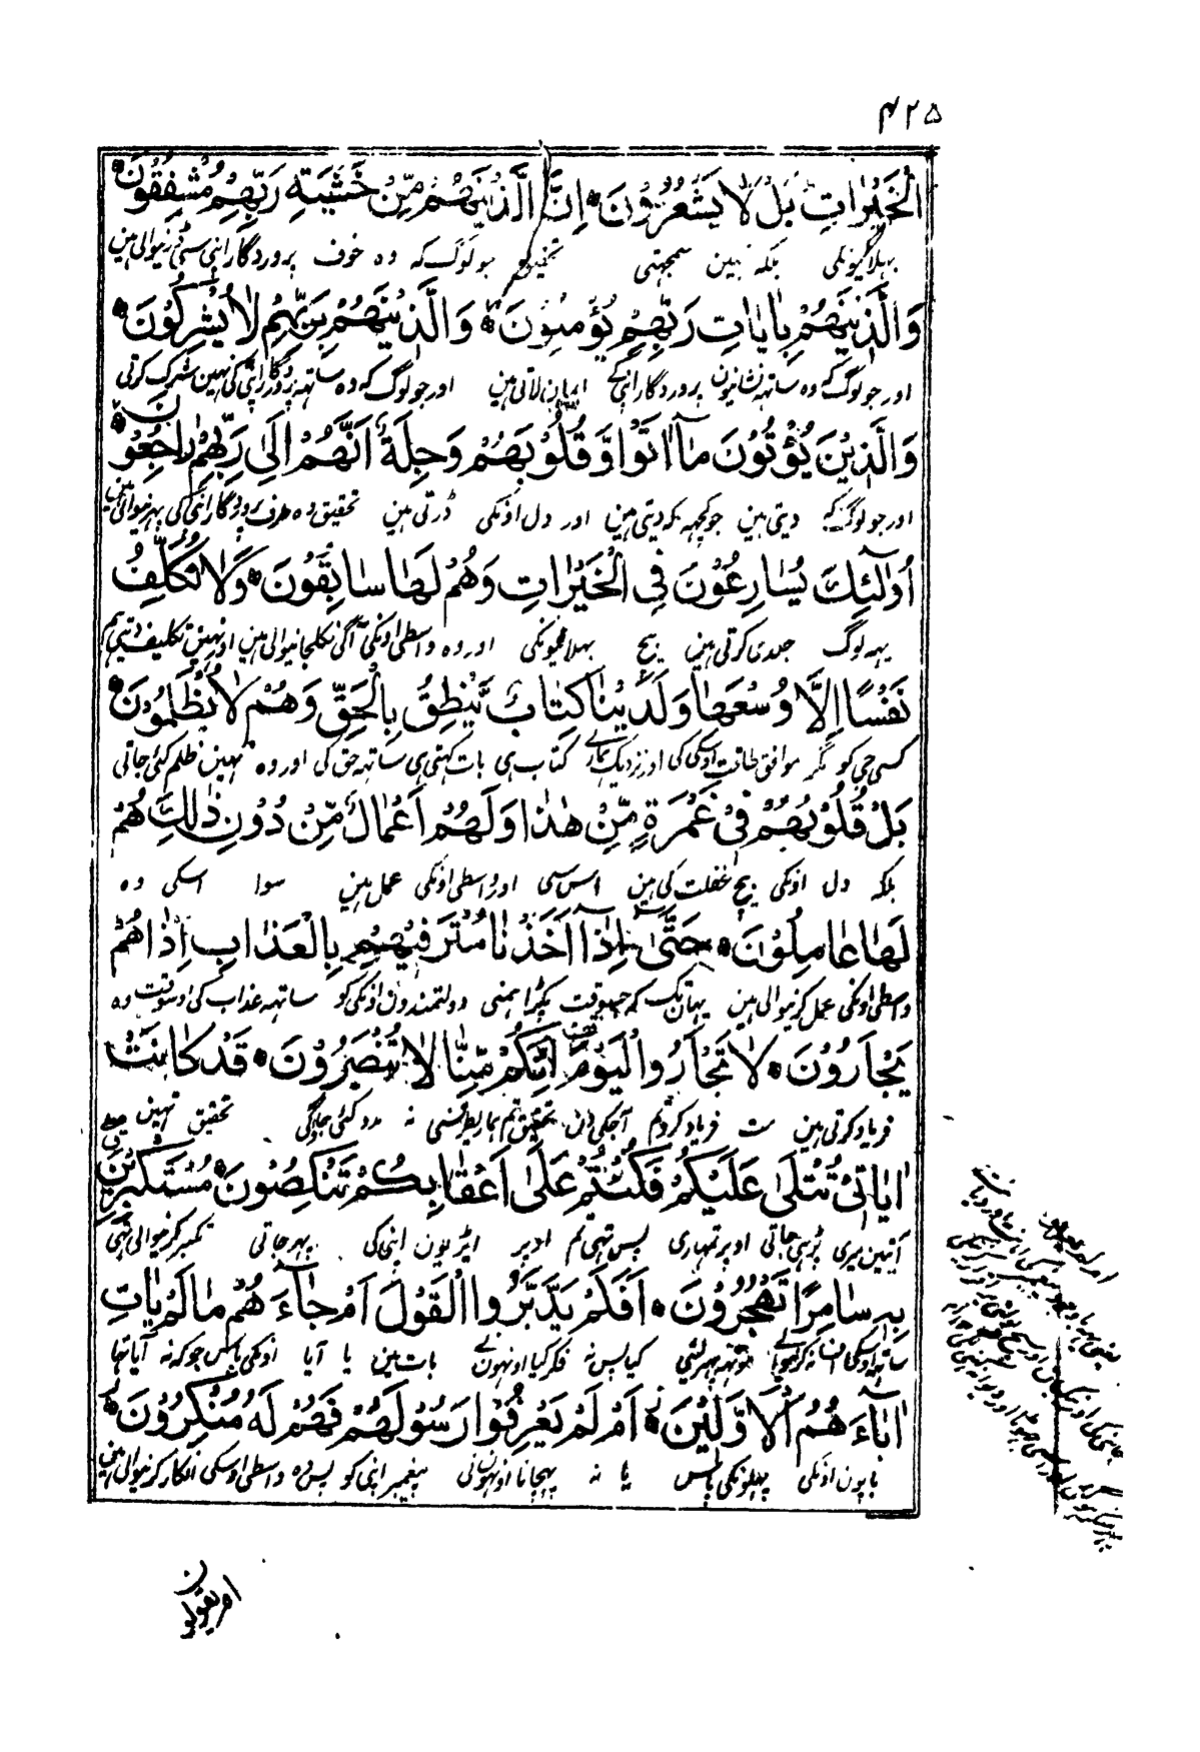 ۴۲۵
الْخَيْرَاتِ بَلْ لَا يَشْعُرُونَ إِنَّ الَّذِينَهُمْ مِّنْ خَشْيَةِ رَبِّهِمْ مُشْفِقُونَ
بہلائیونکی بلکہ نہین سمجہتی تحقیق جو لوگ کہ وہ خوف پروردگار اپنی سی ڈرنیوالی ہین
وَالَّذِينَهُمْ بِاٰيَاتِ رَبِّهِمْ يُؤْمِنُونَ وَالَّذِينَهُمْ بِرَبِّهِمْ لَا يُشْرِكُونَ
اور جو لوگ کہ وہ ساتہہ نشانیون پروردگار اپنی کے ایمان لاتی ہین اور جو لوگ کہ وہ ساتہہ پروردگار اپنی کی نہین شرک کرتی
وَالَّذِيْنَ يُؤْتُوْنَ مَآ اٰتَوْا وَّقُلُوْبُهُمْ وَجِلَةٌ اَنَّهُمْ اِلَىٰ رَبِّهِمْ رَاجِعُوْنَ
اور جو لوگ کہ دیتی ہین جو کچہہ کہ دیتی ہین اور دل اونکی ڈرتی ہین تحقیق وہ طرف پروردگار اپنی کی پہرنیوالی ہین
اُولٰٓئِكَ يُسَارِعُوْنَ فِي الْخَيْرَاتِ وَهُمْ لَهَا سَابِقُوْنَ وَلَا نُكَلِّفُ
یہہ لوگ جلدی کرتی ہین بیچ بہلائیونکی اور وہ واسطی اونکی آگی نکلجانیوالی ہین اور نہین تکلیف دیتی ہم
نَفْسًا اِلَّا وُسْعَهَا وَلَدَيْنَا كِتَابٌ يَّنْطِقُ بِالْحَقِّ وَهُمْ لَا يُظْلَمُوْنَ
کسی جی کو مگر موافق طاقت اوسکی کی اور نزدیک ہمارے کتاب ہی بات کہتی ہی ساتہہ حق کی اور وہ نہین ظلم کئی جاتی
بَلْ قُلُوْبُهُمْ فِيْ غَمْرَةٍ مِّنْ هٰذَا وَلَهُمْ اَعْمَالٌ مِّنْ دُوْنِ ذٰلِكَ هُمْ
بلکہ دل اونکی بیچ غفلت کی ہین اس سی اور واسطی اونکی عمل ہین سوا اسکی وہ
لَهَا عَامِلُوْنَ حَتّٰى اِذَآ اَخَذْنَا مُتْرَفِيْهِمْ بِالْعَذَابِ اِذَا هُمْ
واسطی اونکی عمل کرنیوالی ہین یہانتک کہ جسوقت پکڑا ہمنی دولتمندون اونکی کو ساتہہ عذاب کی اوسوقت وہ
يَجْاَرُوْنَ لَا تَجْاَرُوا الْيَوْمَ اِنَّكُمْ مِّنَّا لَا تُنْصَرُوْنَ قَدْ كَانَتْ
فریاد کرتی ہین مت فریاد کرو تم آجکی دن تحقیق تم ہماریطرفسی نہ مدد کئی جاوگی تحقیق تہین
اٰيَاتِيْ تُتْلٰى عَلَيْكُمْ فَكُنْتُمْ عَلٰى اَعْقَابِكُمْ تَنْكِصُوْنَ مُسْتَكْبِرِيْنَ
آیتین میری پڑہی جاتی اوپر تمہاری پس تہی تم اوپر ایڑیون اپنی کی پہر جاتی تکبر کرنیوالی تہی
بِهٖ سَامِرًا تَهْجُرُوْنَ اَفَلَمْ يَدَّبَّرُوا الْقَوْلَ اَمْ جَآءَ هُمْ مَا لَمْ يَاْتِ
ساتہہ اوسکی کیا پس نہ فکر کیا اونہون نے بات مین یا آیا اونکی پاس جو کہ نہ آیا تہا
اٰبَآءَ هُمُ الْاَوَّلِيْنَ اَمْ لَمْ يَعْرِفُوْا رَسُوْلَهُمْ فَهُمْ لَهٗ مُنْكِرُوْنَ
باپون اونکی پہلونکی پاس یا نہ پہچانا اونہون نی پیغمبر اپنی کو پس وہ واسطی اوسکی انکار کرنیوالی ہین
ام یقولون